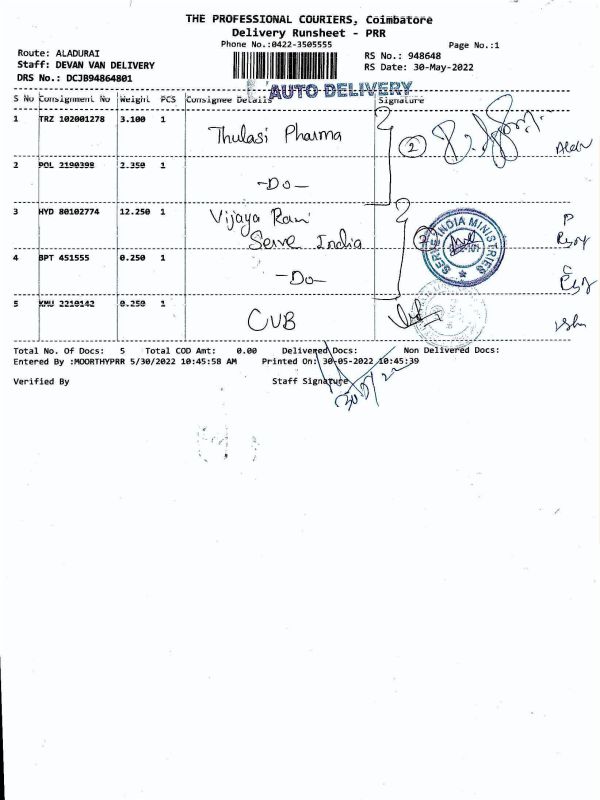 THE PROFESSIONAL COURIERS, Coimbatore
Delivery Runsheet - PRR
Phone No.:0422-3505555 Page No.:1
Route: ALADURAI RS No.: 948648
Staff: DEVAN VAN DELIVERY RS Date: 30-May-2022
DRS No.: DCJB94864801
AUTO DELIVERY
S No Consignment No Weight PCS Consignee Details Signature
1 TRZ 102001278 3.100 1 Thulasi Pharma 2
2 POL 2190398 2.350 1 -Do-
3 HYD 80102774 12.250 1 Vijaya Rani
Serve India
SERVE INDIA MINISTRIES
4 BPT 451555 0.250 1 -Do-
5 KMU 2210142 0.250 1 CUB
Total No. Of Docs: 5 Total COD Amt: 0.00 Delivered Docs: Non Delivered Docs:
Entered By :MOORTHYPRR 5/30/2022 10:45:58 AM Printed On: 30-05-2022 10:45:39
Verified By Staff Signature